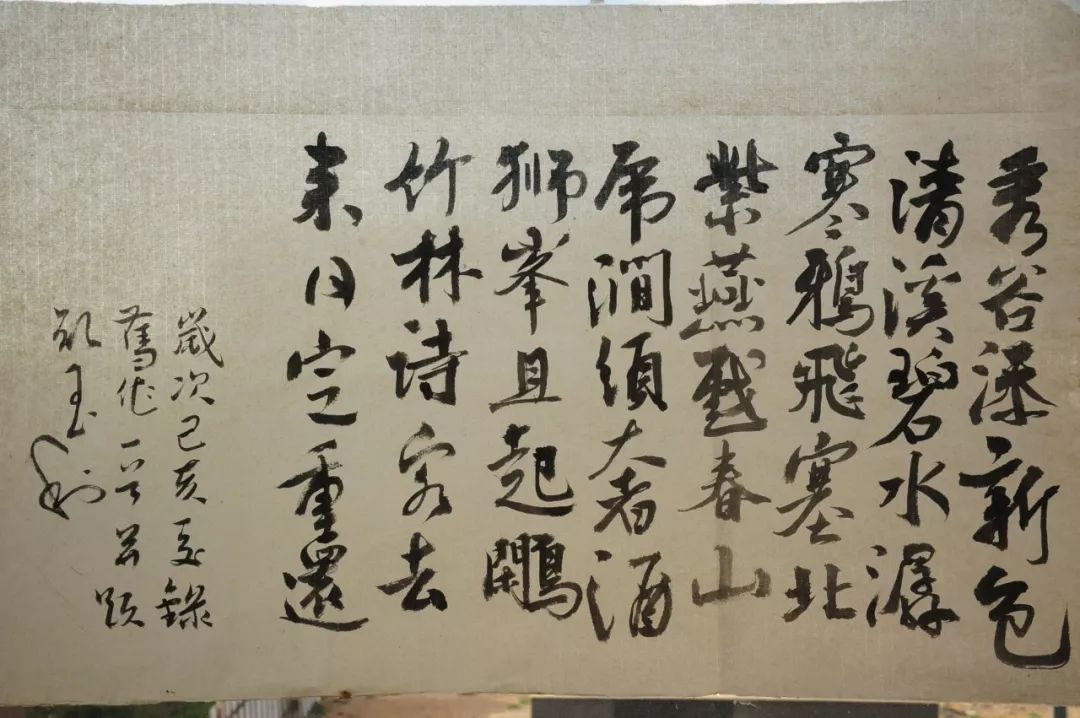 秀谷添新色
清溪碧水潺
寒鴉飛塞北
紫燕戲春山
虎澗須奢酒
狮峯且起鷴
竹林诗客去
来日定重還
歲次己亥夏錄
舊作一首并題